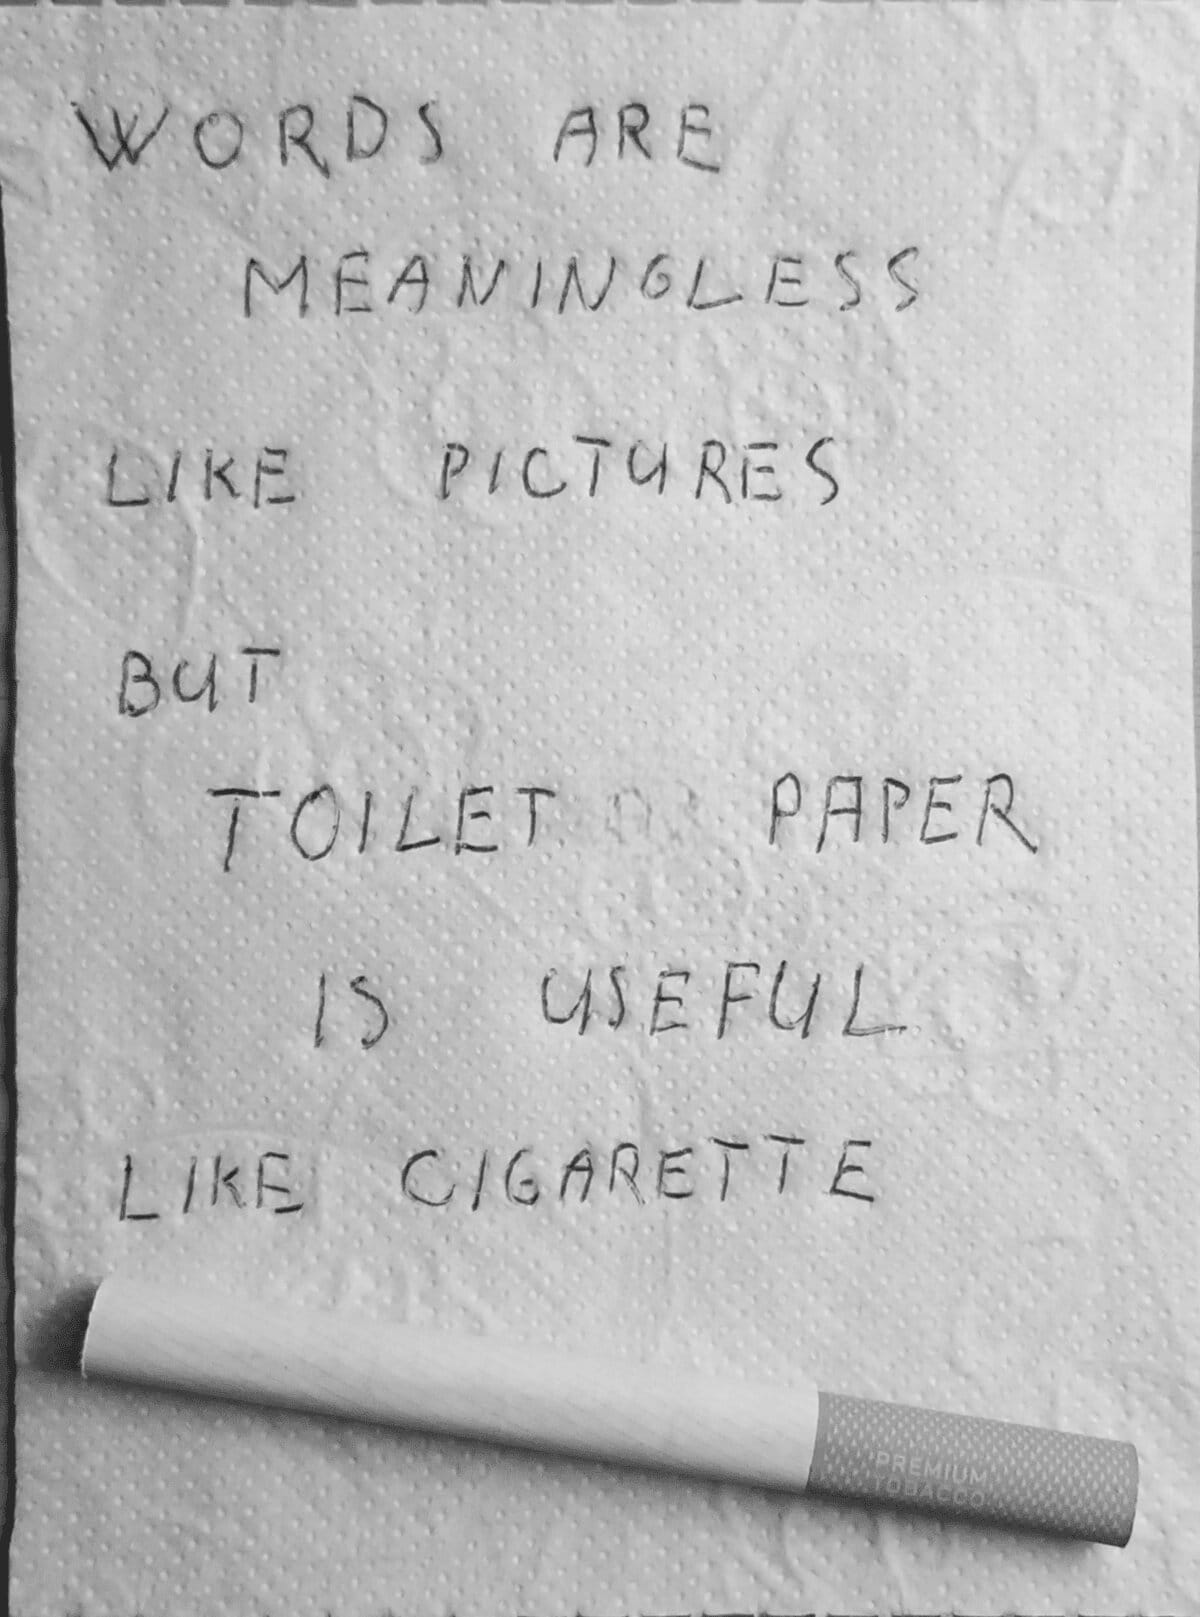 WORDS ARE
MEANINGLESS
LIKE PICTURES
BUT
TOILET PAPER
IS USEFUL
LIKE CIGARETTE
PREMIUM
TOBACCO